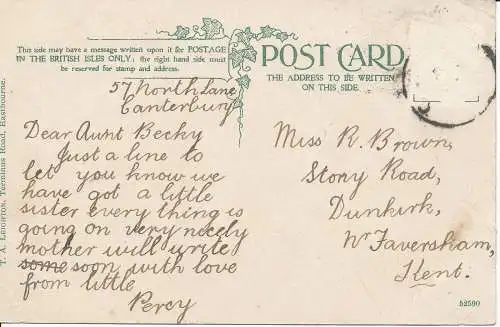 This side may have a message written upon it for POSTAGE
IN THE BRITISH ISLES ONLY; the right hand side must
be reserved for stamp and address.
POST CARD
THE ADDRESS TO BE WRITTEN
ON THIS SIDE.
57 North Lane
Canterbury
Dear Aunt Becky
Just a line to
let you know we
have got a little
sister every thing is
going on very nicely
mother will write
some soon with love
from little
Percy
Miss R. Brown,
Stony Road,
Dunkirk,
Nr Faversham,
Kent.
T. A. LEIGHTON, Terminus Road, Eastbourne.
52590